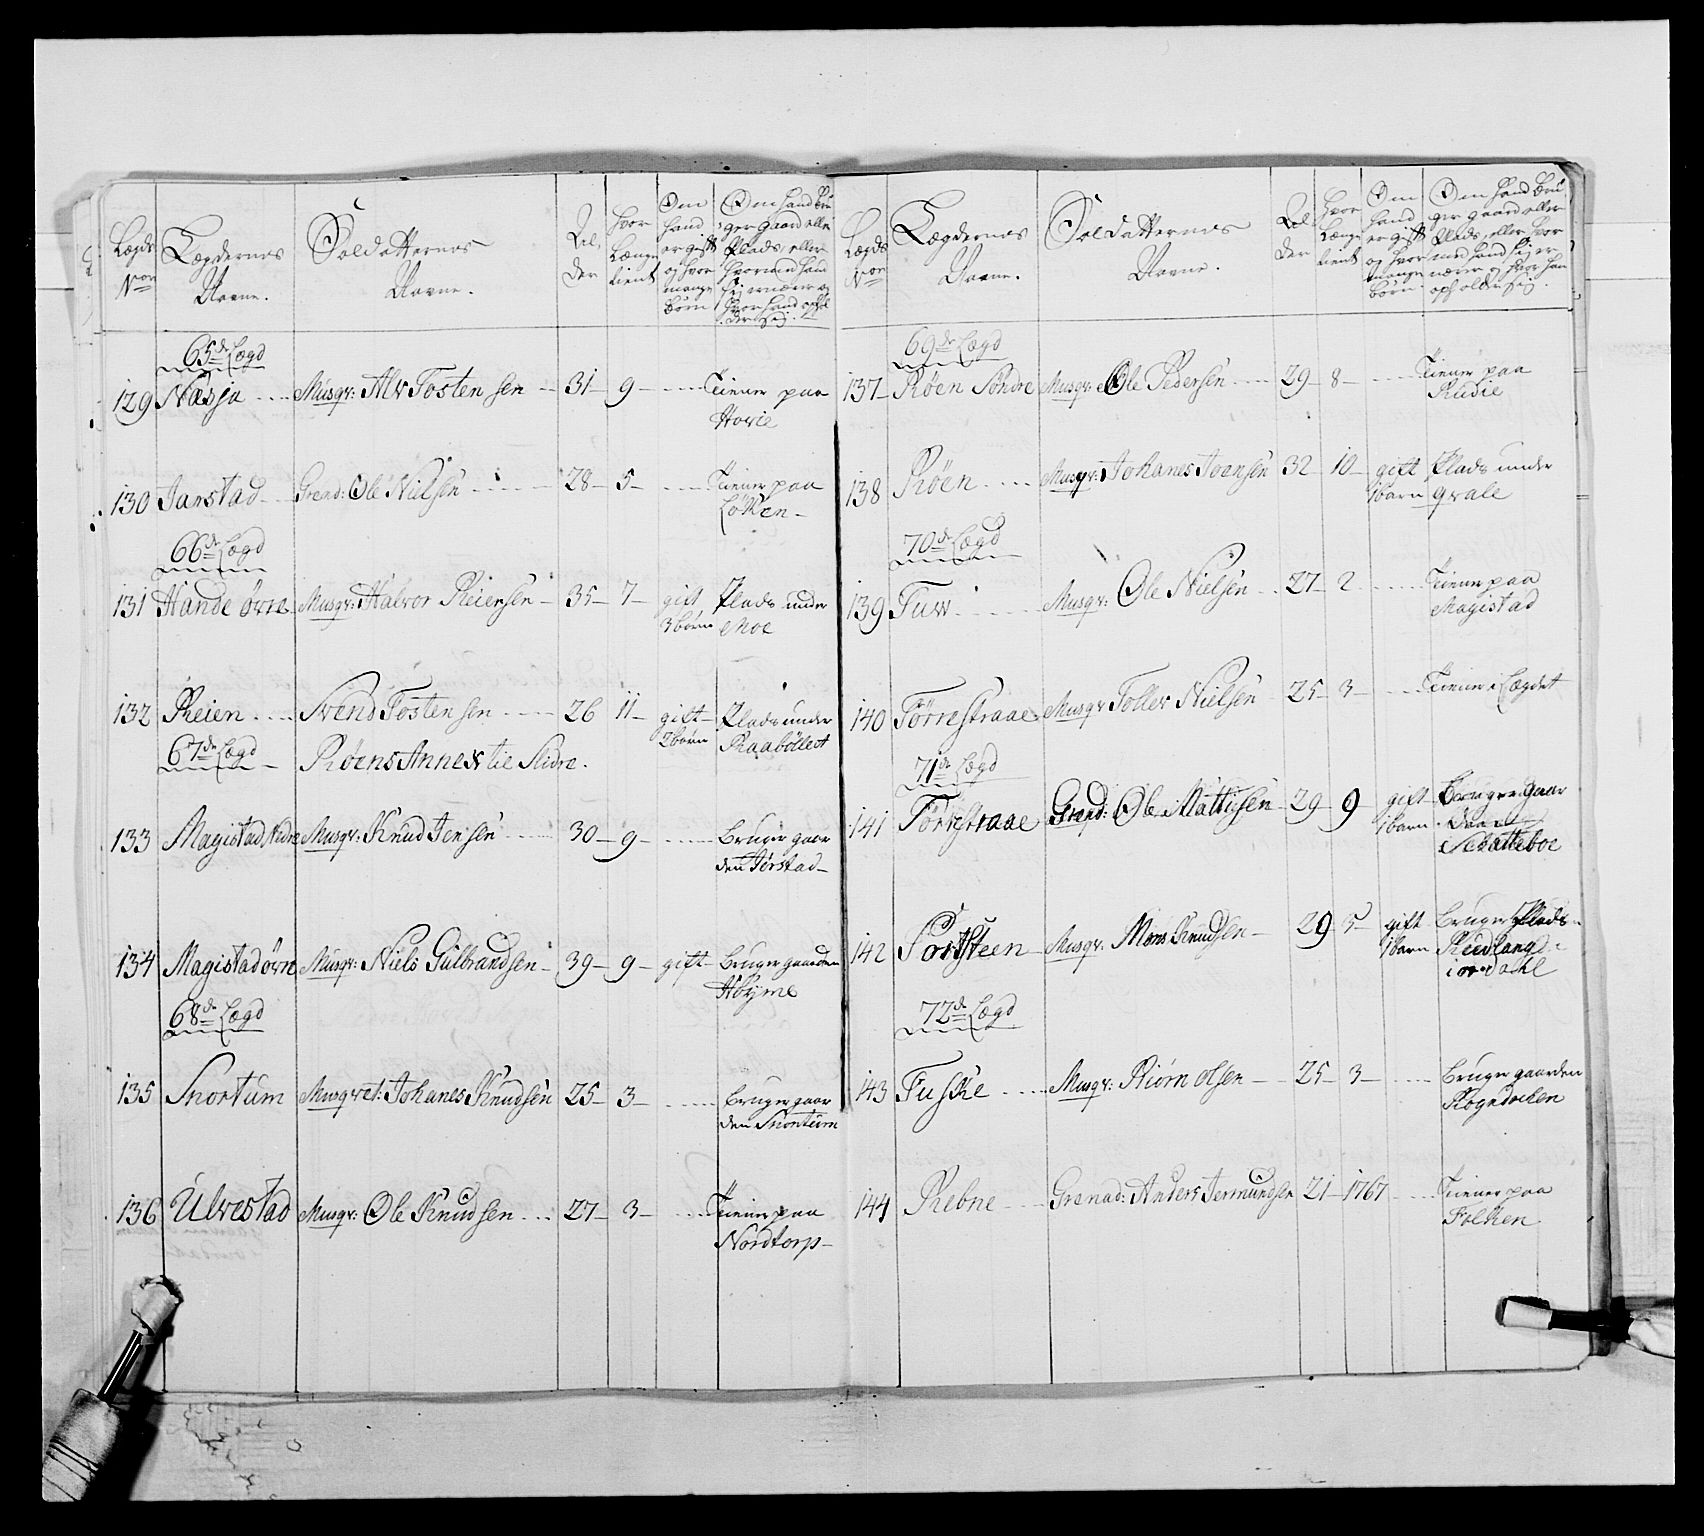 Lægds N<sup>or</sup>
Lægdernes Navne.
Soldatternes Navne.
Alder
hvor længe tient
Om hand er gift og hvor mange børn
Om hand bruger gaard eller Plads, eller hvormed hand sig ernærer og hvor hand opholder sig.
65<sup>de</sup> Lægd
129 Næsja Musqr: Alv Tosten sen 31 9 Tiener paa
Hovie
130 Jarstad Grend: Ole Nielsen 28 5 Tiener paa
Løken
66<sup>de</sup> Lægd
131 Hande øvre Musqr: Halvor Reiersen 35 7 gift Plads under
3 børn Moe
132 Reien Svend Tostensen 26 11 gift Plads under
2 børn Raabøllet
67<sup>de</sup> Lægd Røens Annex til Slidre.
133 Magistad Nedre Musqr: Knud Jensen 30 9 Bruger gaar
den Jørstad
134 Magistad øvre Musqr: Niels Gulbrandsen 39 9 gift Bruger gaarden
68<sup>de</sup> Lægd
135 Snortum Musqvet: Johanes Knudsen 25 3 Bruger gaar
den Snortum
136 Ulvestad Musqr: Ole Knudsen 27 3 Tiener paa
Nordtorp
Lægds N<sup>or</sup>
Lægdernes Navne.
Soldatternes Navne.
Alder
hvor længe tient
Om hand er gift og hvor mange børn
Om hand bruger gaard eller Plads, eller hvor med hand sig ernærer og hvor han opholder sig.
69<sup>de</sup> Lægd
137 Røen Søndre Musqr: Ole Pedersen 29 8 Tiener paa
Rudie
138 Røen Musqr: Johanes Joensen 32 10 gift Plads under
1 barn Qvale
70<sup>de</sup> Lægd
139 Tuv Musqr: Ole Nielsen 27 2 Tiener paa
Magistad
140 Tørrestraae Musqr Tollev Nielsen 25 3 Tiener i Lægdet
71<sup>de</sup> Lægd
141 Tørrestraae Grend: Ole Mattisen 29 9 gift Bruger gaar
1 barn den
142 Musqr. Mons Knudsen 29 5 gift Bruger Plads
1 barn
72<sup>de</sup> Lægd
143 Fuske Musqr: Biørn Olsen 25 3 Bruger gaarden
144 Rebne Grenad: Anders Jermundsen 21 1767 Tiener paa
Folken